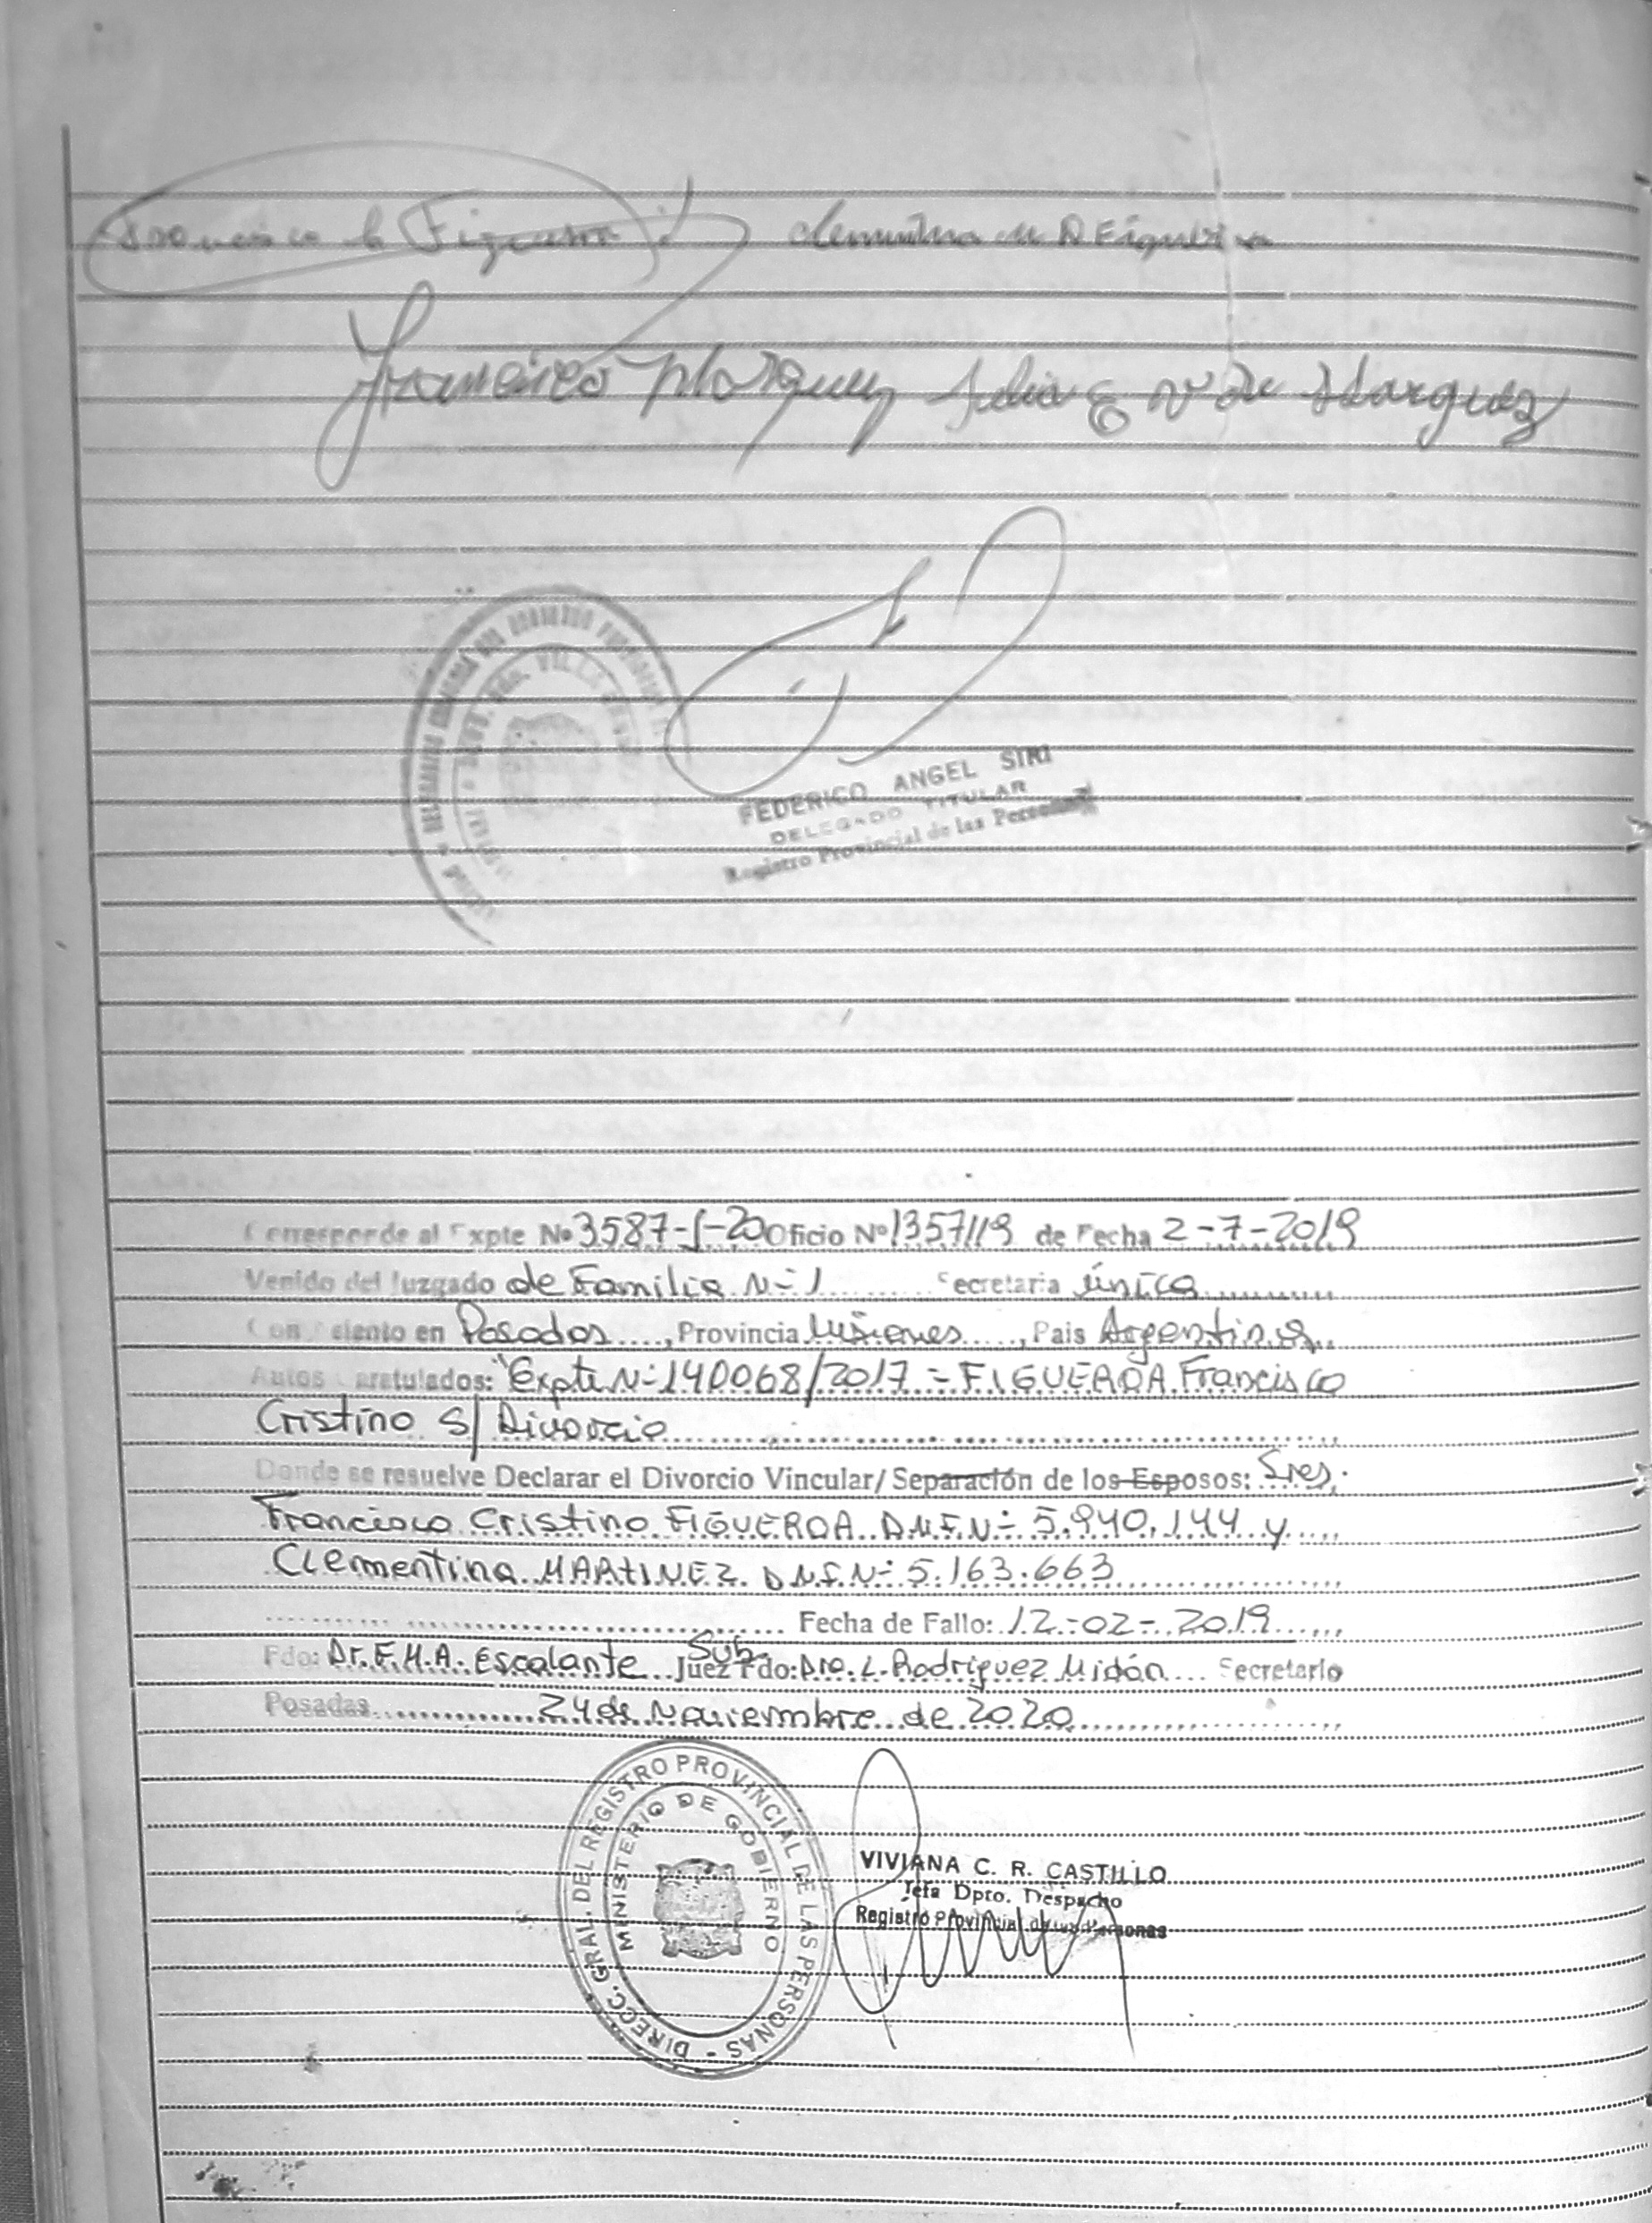 Francisco C Figueroa Clementina M D Figueroa
Francisco Marquez Delia E V de Marquez
VILLA
FEDERICO ANGEL SIRI
DELEGADO TITULAR
Registro Provincial de las Personas
Corresponde al Expte Nº 3587-J-20 Oficio Nº 1357/19 de Fecha 2-7-2019
Venido del Juzgado de Familia Nº 1 Secretaria única
Con Asiento en Posadas, Provincia Misiones, Pais Argentina
Autos Caratulados: "Expte Nº 140068/2017 = FIGUEROA Francisco
Cristino S/ Divorcio
Donde se resuelve Declarar el Divorcio Vincular/ Separación de los Esposos: Sres.
Francisco Cristino FIGUEROA D.N.I.Nº 5.940.144 y
Clementina MARTINEZ D.N.I.Nº 5.163.663
Fecha de Fallo: 12-02-2019
Fdo: Dr. F.H.A. Escalante Juez Sub. Fdo: Dra. L. Rodriguez Midón Secretario
Posadas 24 de Noviembre de 2020
DIRECC. GRAL. DEL REGISTRO PROVINCIAL DE LAS PERSONAS -
MINISTERIO DE GOBIERNO
VIVIANA C. R. CASTILLO
Jefa Dpto. Despacho
Registro Provincial de las Personas